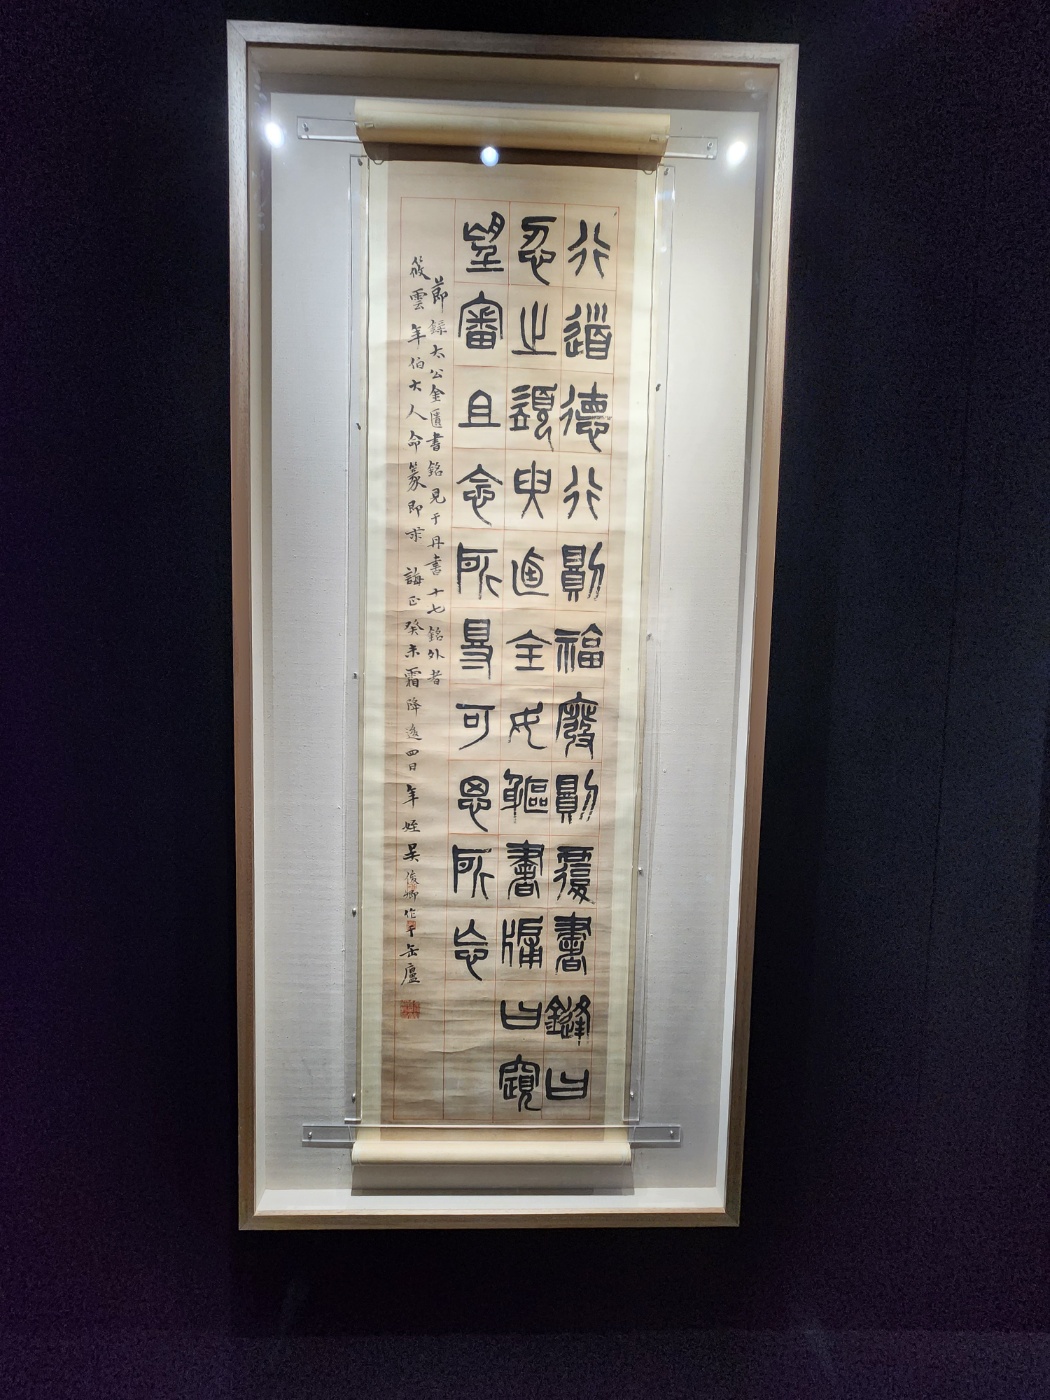 行道德行則福廢則覆書鏠曰
忍之須臾迺全女軀書牖曰窺
望審且念所得可思所忘
節錄太公金匱書銘見于丹書十七銘外者
筱雲年伯大人命篆即求誨正癸未霜降後四日年姪吳俊卿作于缶廬